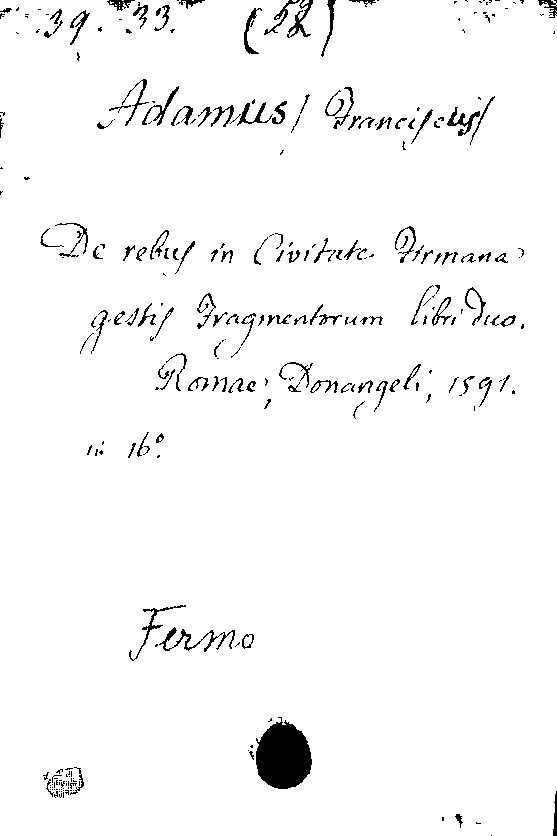 39. 33. (22)
Adamus/ Franciscus/
De rebus in Civitate Firmana
gestis Fragmentorum libri duo.
Romae, Donangeli, 1591.
in 16°.
Fermo